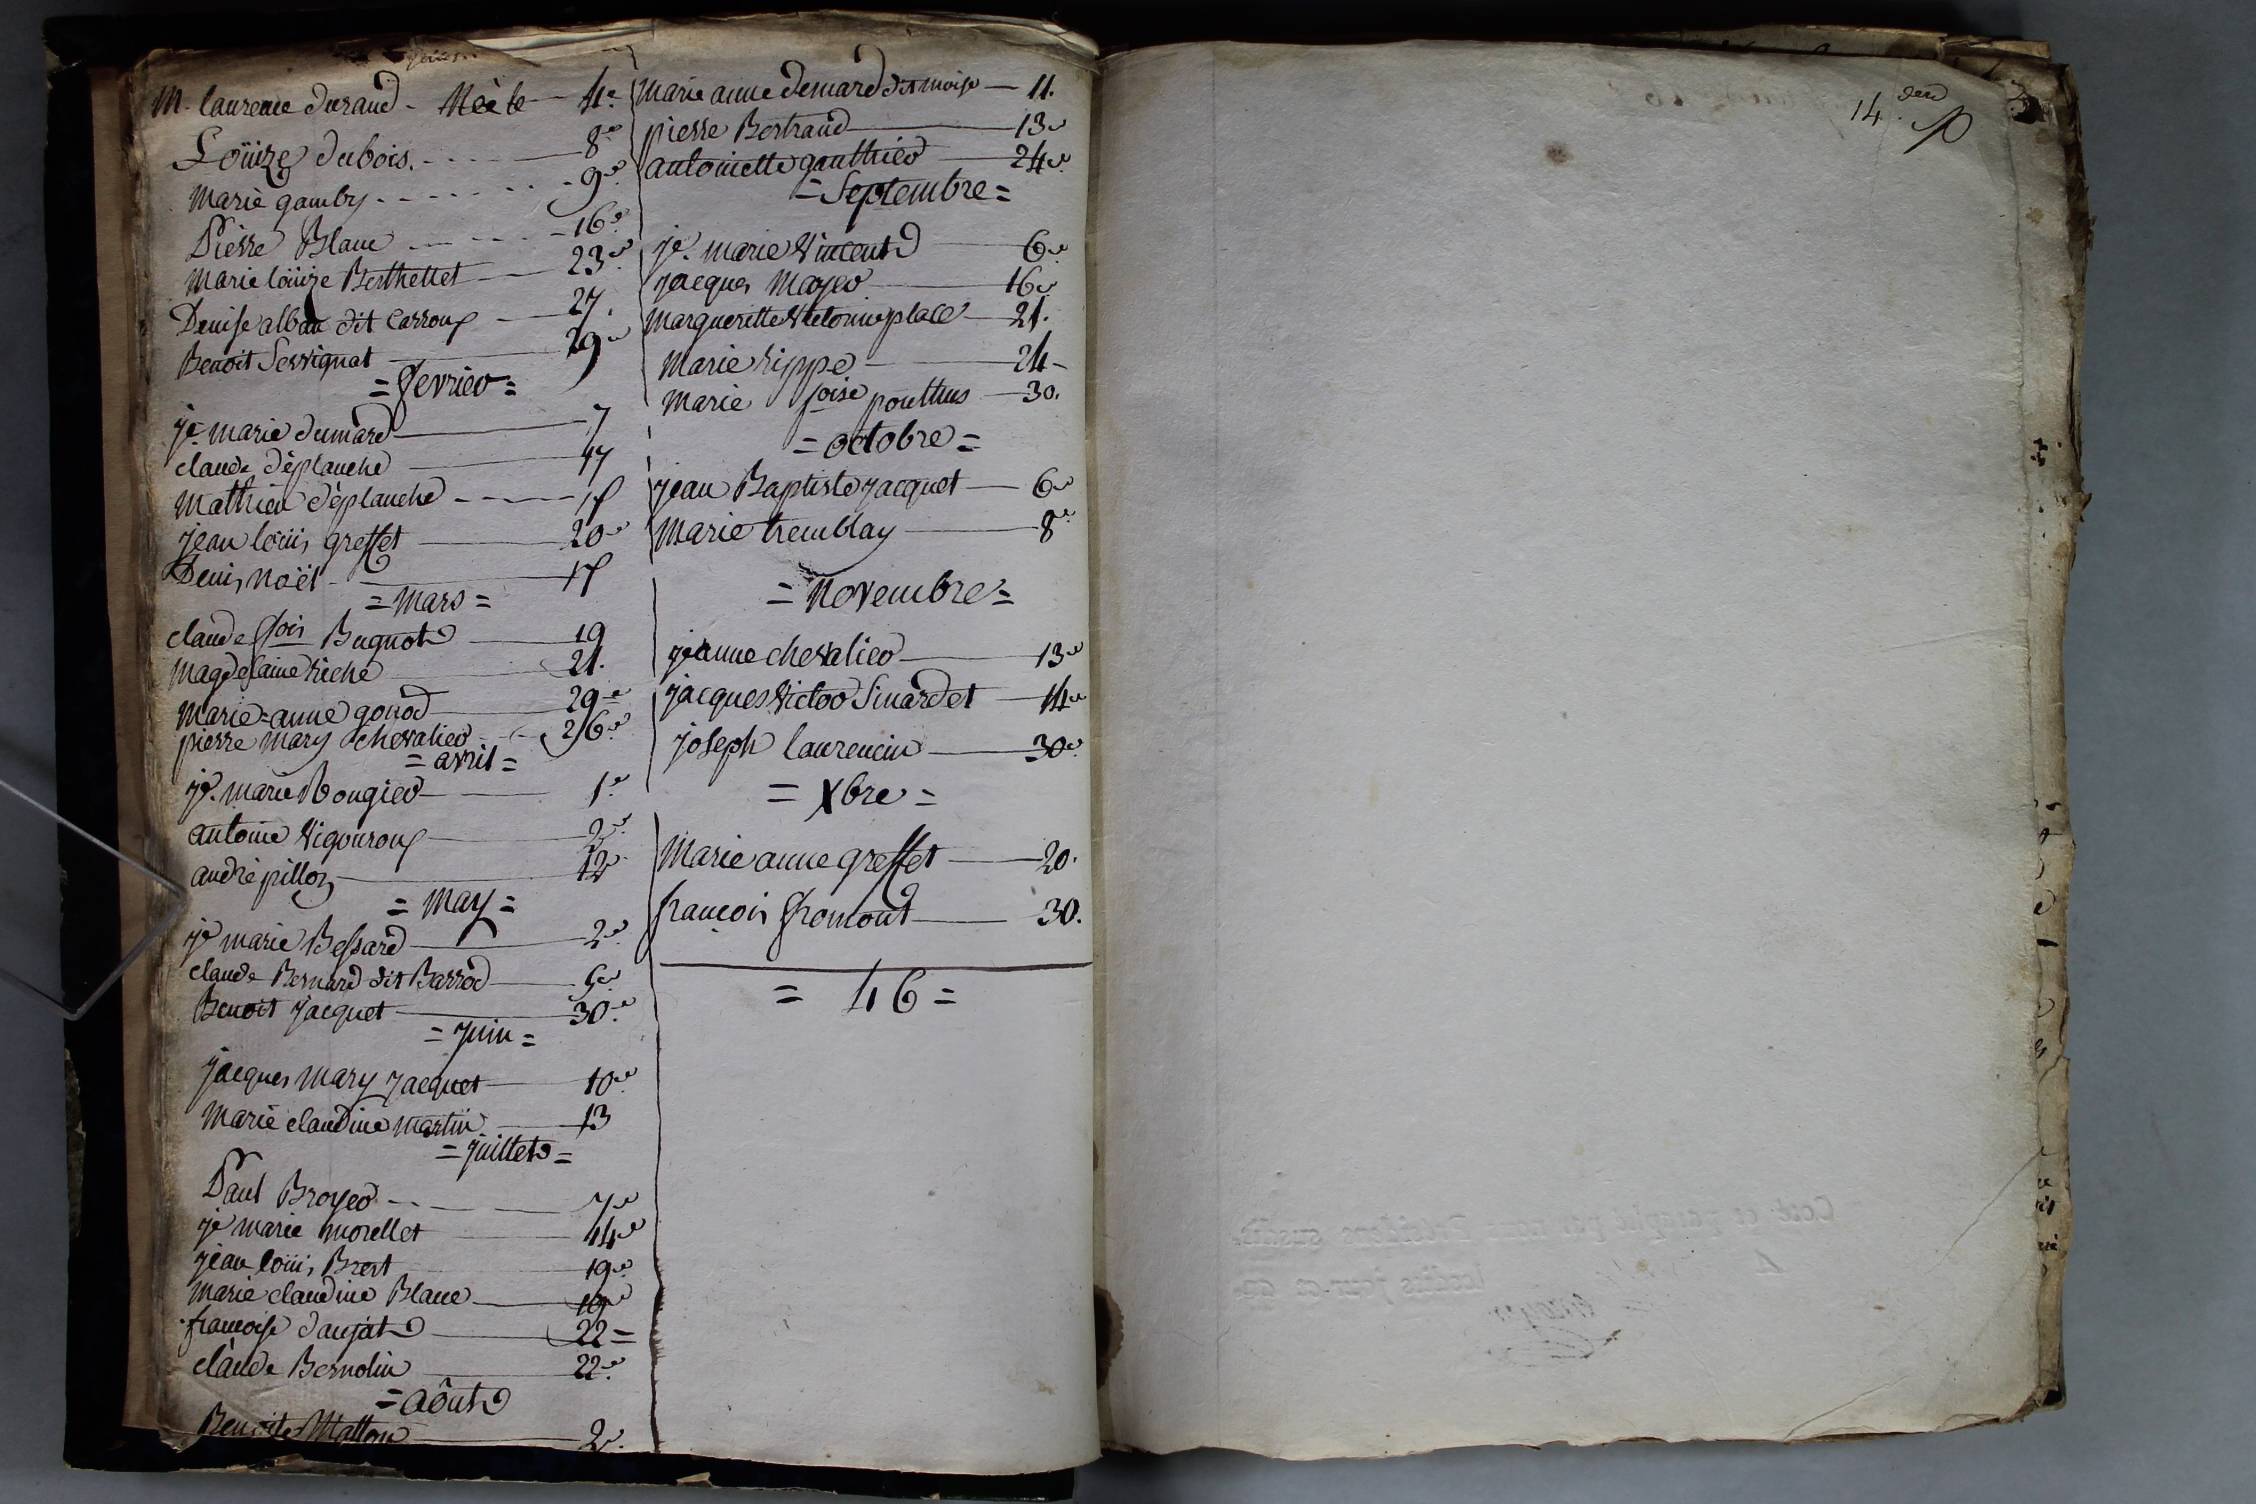 M. laurence durand - Née le - 4.e
Loüize dubois. - 8.e
Marie gamby - 9.e
Pierre Blanc - 16.e
Marie loüize Berthellet - 23.e
Denise alban dit Carroux - 27.
Benoit Servignat - 29.e
= fevrier =
je. marie dumard - 7
claude déplanche - 17
Mathieu déplanche - 18
jean loüis greffet - 20.e
Denis Noël - 18
= Mars =
claude fois Bugnot - 19
Magdelaine riche - 21.
Marie=anne gonod - 29.e
pierre mary chevalier - 26.e
= avril =
je. marie Rougier - 1.er
antoine Vigouroux - 2.e
andré pillon - 12
= May =
je marie Bessard - 2.e
claude Bernard dit Barrod - 5.e
Benoit jacquet - 30.e
= juin =
jacques Mary jacquet - 10.e
Marie claudine martin - 13
= juillet =
Paul Broyer - 7.e
je marie Morellet - 14.e
jean loüis Brert - 19.e
Marie claudine Blanc - 19.e
françoise daujat - 22 =
claude Bernolin - 22.e
= aôut =
Benoit Matton - 2.e
Marie anne demard dit moise - 11.
pierre Bertrand - 13.e
antoinette gauthier - 24.e
= Septembre =
je. marie Vincent - 6.e
jacques Mayer - 16.e
Margueritte place - 21.
Marie rippe - 24 -
Marie foise pouthus - 30.
= octobre =
jean Baptiste jacquet - 6.e
Marie tremblay - 8.e
= Novembre =
jeanne chevalier - 13.e
jacques Victor Sinardet - 14.e
joseph laurencin - 30.e
= Xbre =
Marie anne greffet - 20.
françois fromont - 30.
= 46 =
14. der